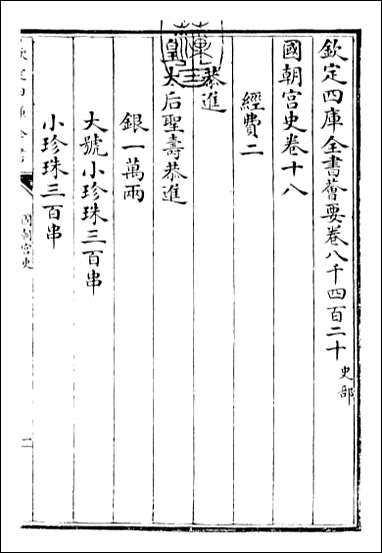 欽定四庫全書薈要卷八千四百二十 史部
國朝宮史卷十八
經費二
恭進
皇太后聖壽恭進
銀一萬兩
大號小珍珠三百串
小珍珠三百串
欽定四庫全書
國朝宮史